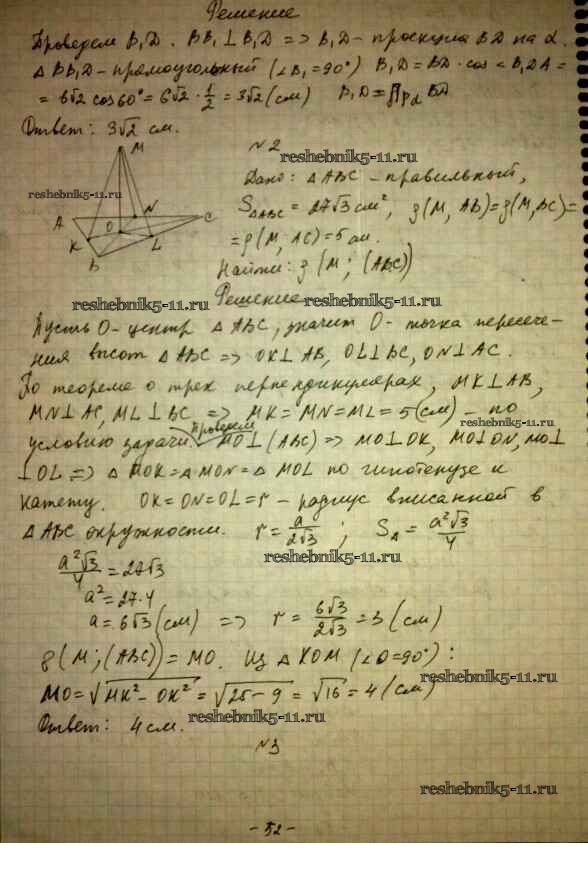 Решение
Проведем B₁D. BB₁ ⊥ B₁D => B₁D - проекция BD на α.
△ BB₁D - прямоугольный (∠B₁ = 90°) B₁D = BD · cos ∠B₁DA =
= 6√2 cos 60° = 6√2 · 1/2 = 3√2 (см) B₁D = Пр_α BD
Ответ: 3√2 см.
M
N
A
C
O
K
L
B
N2
reshebnik5-11.ru
reshebnik5-11.ru
Дано: △ABC - правильный,
S△ABC = 27√3 см², ρ(M, AB) = ρ(M, BC) =
= ρ(M, AC) = 5 см.
Найти: ρ(M; (ABC))
Решение
reshebnik5-11.ru reshebnik5-11.ru
Пусть O - центр △ ABC, значит O - точка пересече-
ния высот △ ABC => OK ⊥ AB, OL ⊥ BC, ON ⊥ AC.
По теореме о трех перпендикулярах, MK ⊥ AB,
MN ⊥ AC, ML ⊥ BC => MK = MN = ML = 5 (см) - по
reshebnik5-11.ru
условию задачи. Проведем MO ⊥ (ABC) => MO ⊥ OK, MO ⊥ ON, MO ⊥
⊥ OL => △ MOK = △ MON = △ MOL по гипотенузе и
катету. OK = ON = OL = r - радиус вписанной в
△ ABC окружности. r = a/2√3 ; S△ = a²√3/4
reshebnik5-11.ru
a²√3/4 = 27√3
a² = 27·4
a = 6√3 (см) => r = 6√3/2√3 = 3 (см)
ρ(M; (ABC)) = MO. Из △ KOM (∠O = 90°):
reshebnik5-11.ru
MO = √MK² - OK² = √25 - 9 = √16 = 4 (см)
reshebnik5-11.ru
Ответ: 4 см.
N3
reshebnik5-11.ru
- 52 -